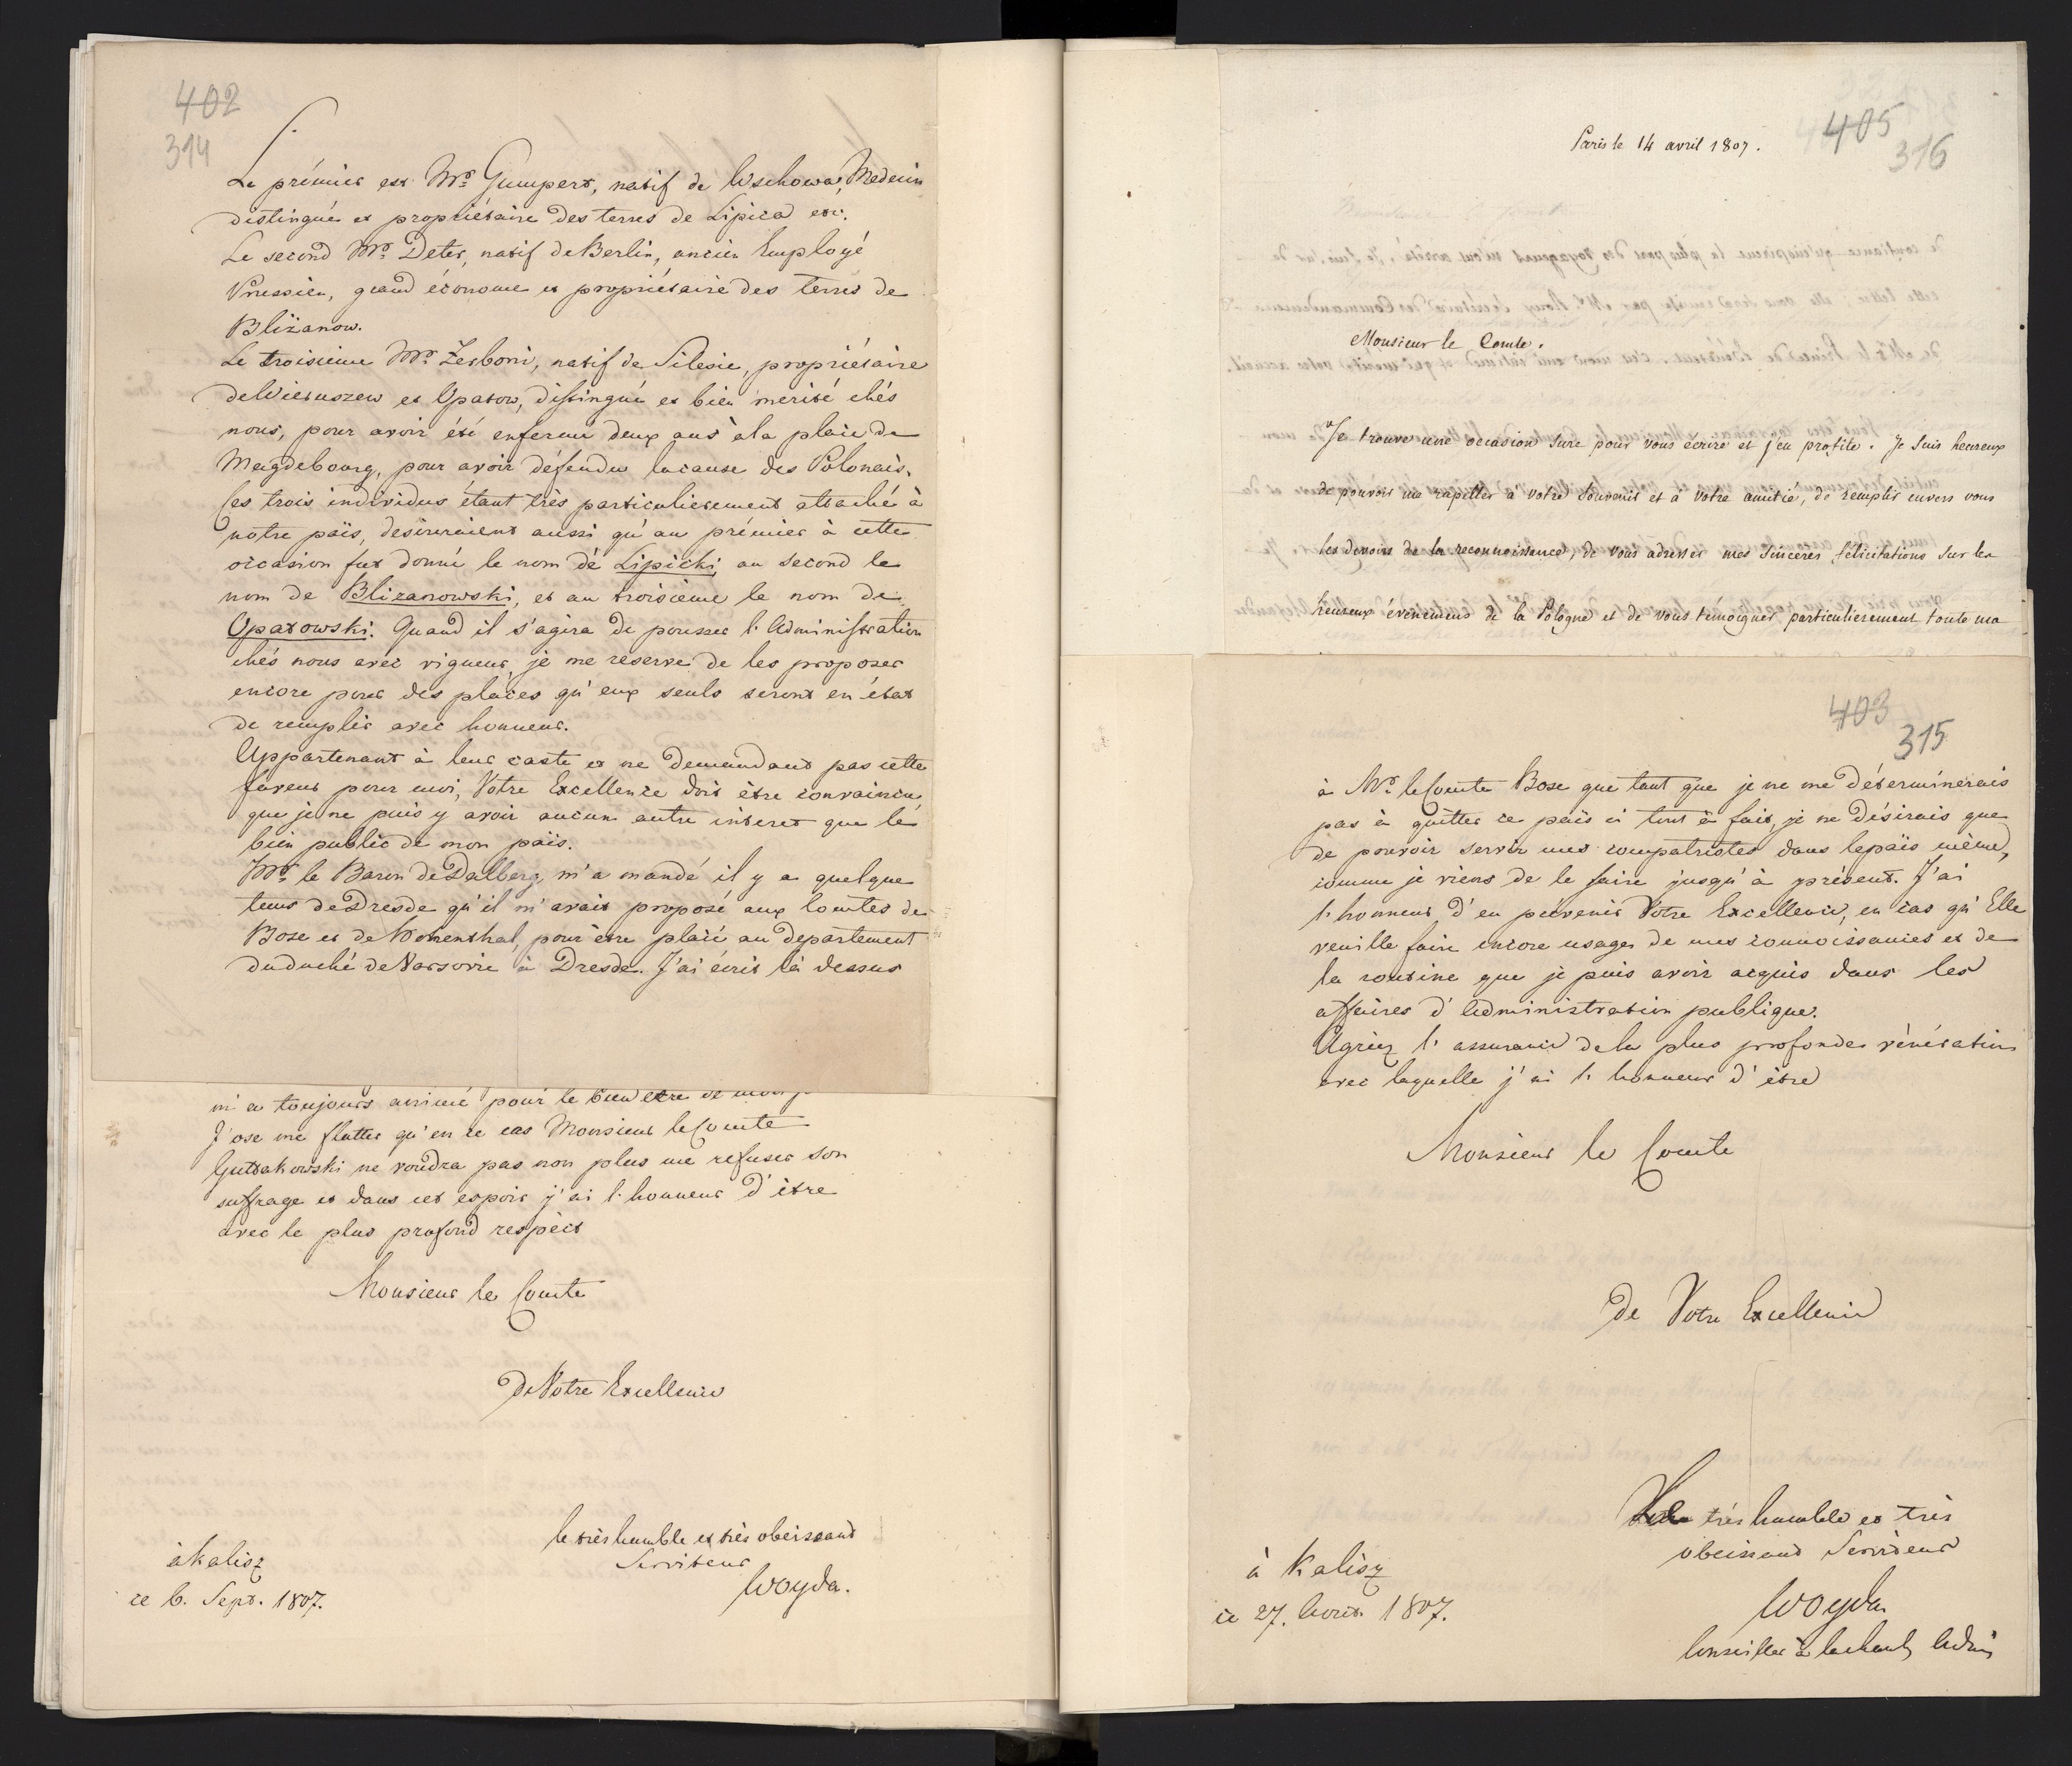 402
314
Le prémier est Mr. Gumpert, natif de Wschowa, Medecin
distingué et propriétaire des terres de Lipica etc.
Le second Mr. Deter, natif de Berlin, ancien Employé
Prussien, grand économe et propriétaire des terres de
Bliżanow.
Le troisieme Mr. Zerboni, natif de Silesie, propriétaire
de Wieruszew et Opatow, distingué et bien merité chés
nous, pour avoir été enfermé deux ans à la place de
Magdebourg, pour avoir défendu la cause des Polonais.
Ces trois individus étant très particulierement attaché à
notre païs, desireraient aussi qu'au prémier à cette
occasion fut donné le nom de Lipicki, au second le
nom de Blizanowski, et au troisieme le nom de
Opatowski. Quand il s'agira de pousser l'Administration
chés nous avec vigueur, je me reserve de les proposer
encore pour des places qu'eux seuls seront en état
de remplir avec honneur.
Appartenant à leur caste et ne demandant pas cette
faveur pour moi, Votre Excellence doit être convaincu,
que je ne puis y avoir aucun autre interet que le
bien public de mon païs.
Mr. le Baron de Dalberg m'a mandé il y a quelque
tems de Dresde qu'il m'avait proposé aux Comtes de
Bose et de Hohenthal, pour être placé au departement
du duché de Varsovie à Dresde. J'ai écrit là dessus
m'a toujours animé pour le bien etre de mon
J'ose me flatter qu'en ce cas Monsieur le Comte
Gutakowski ne voudra pas non plus me refuser son
suffrage et dans cet espoir j'ai l'honneur d'être
avec le plus profond respect
Monsieur le Comte
De Votre Excellence
le très humble et très obeissant
Serviteur
Woyda.
à Kalisz
ce 6. Sept. 1807.
405
316
Paris le 14 avril 1807.
Monsieur le Comte.
Je trouve une occasion sure pour vous écrire et j'en profite. Je suis heureux
de pouvoir me rapeller à votre souvenir et à votre amitié, de remplir envers vous
les devoirs de la reconnoissance, de vous adresser mes sinceres félicitations sur les
heureux évenemens de la Pologne et de vous témoigner particulierement toute ma
403
315
à Mr. le Comte Bose que tant que je ne me déterminerais
pas à quitter ce païs ci tout à fait, je ne désirais que
de pouvoir servir mes compatriotes dans le païs même,
comme je viens de le faire jusqu'à présent. J'ai
l'honneur d'en prévenir Votre Excellence, en cas qu'Elle
veuille faire encore usage de mes connoissances et de
la routine que je puis avoir acquis dans les
affaires d'Administration publique.
Agréez l'assurance de la plus profonde vénération
avec laquelle j'ai l'honneur d'être
Monsieur le Comte
De Votre Excellence
Le très humble et très
obeissant Serviteur
Woyda
Conseiller à la chamb. Adm
à Kalisz
ce 27. 1807.